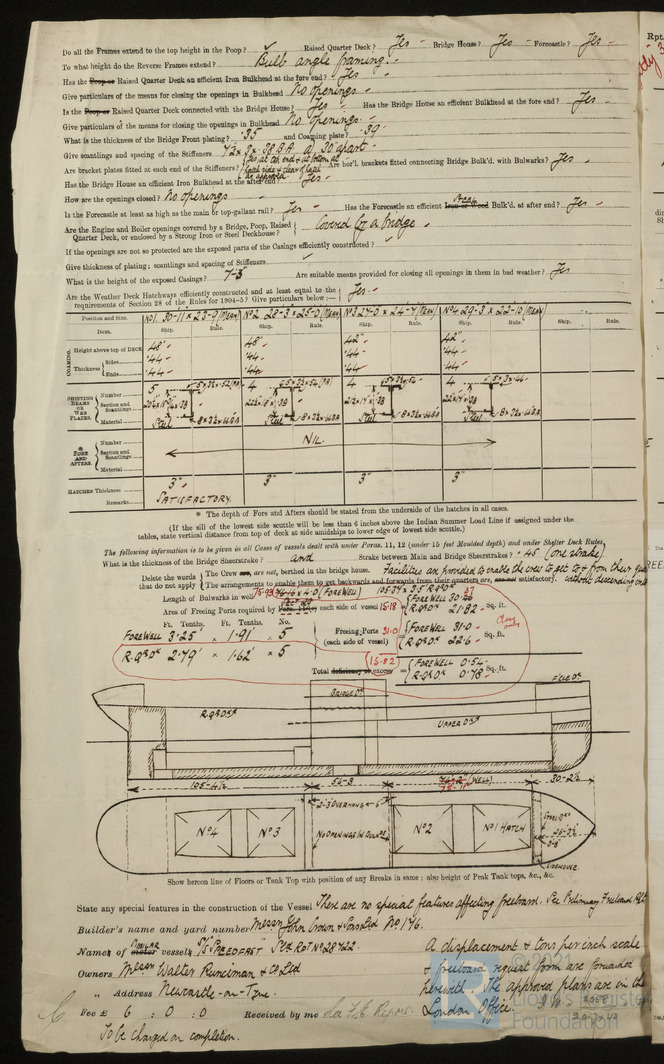 Do all the Frames extend to the top height in the Poop? Raised Quarter Deck? Yes - Bridge House? Yes - Forecastle? Yes -
To what height do the Reverse Frames extend? Bulb angle framing. -
Has the Poop or Raised Quarter Deck an efficient Iron Bulkhead at the fore end? Yes -
Give particulars of the means for closing the openings in Bulkhead No openings -
Is the Poop or Raised Quarter Deck connected with the Bridge House? Yes - Has the Bridge House an efficient Bulkhead at the fore end? Yes -
Give particulars of the means for closing the openings in Bulkhead No openings -
What is the thickness of the Bridge Front plating? .35 and Coaming plate? .39
Give scantlings and spacing of the Stiffeners 7½ x 3 x .38 B.A. @ 30 apart -
Are bracket plates fitted at each end of the Stiffeners? Are hor'l. brackets fitted connecting Bridge Bulk'd. with Bulwarks? Yes -
Has the Bridge House an efficient Iron Bulkhead at the after end? Yes -
How are the openings closed? No openings -
Is the Forecastle at least as high as the main or top-gallant rail? Yes - Has the Forecastle an efficient Iron or Wood Steel Bulk'd. at after end? Yes -
Are the Engine and Boiler openings covered by a Bridge, Poop, Raised Quarter Deck, or enclosed by a Strong Iron or Steel Deckhouse? Covered by a bridge -
If the openings are not so protected are the exposed parts of the Casings efficiently constructed?
Give thickness of plating; scantlings and spacing of Stiffeners
What is the height of the exposed Casings? Are suitable means provided for closing all openings in them in bad weather? Yes
Are the Weather Deck Hatchways efficiently constructed and at least equal to the requirements of Section 28 of the Rules for 1904-5? Give particulars below:— Yes -
Position and Size. No 1 30-11 x 23-9 (Mean) No 2 28-3 x 25-0 (Mean) No 3 27-0 x 24-7 (Mean) No 4 29-3 x 22-10 (Mean)
Item. Ship. Rule. Ship. Rule. Ship. Rule. Ship. Rule. Ship. Rule.
COAMING. Height above top of DECK 48" - 48" - 42" - 42" -
Thickness Sides .44 - .44 - .44 - .44 -
Ends .44 - .44 - .44 - .44 -
SHIFTING BEAMS OR WEB PLATES. Number 5 4 4 4
Section and Scantlings
Material Steel Steel Steel Steel
FORE AND AFTERS. Number
Section and Scantlings NIL.
Material
HATCHES Thickness 3" 3" 3" 3"
Remarks SATISFACTORY.
* The depth of Fore and Afters should be stated from the underside of the hatches in all cases.
(If the sill of the lowest side scuttle will be less than 6 inches above the Indian Summer Load Line if assigned under the
tables, state vertical distance from top of deck at side amidships to lower edge of lowest side scuttle.)
The following information is to be given in all Cases of vessels dealt with under Paras. 11, 12 (under 15 feet Moulded depth) and under Shelter Deck Rules.
What is the thickness of the Bridge Sheerstrake? and Strake between Main and Bridge Sheerstrakes? .45 (one strake)
Delete the words that do not apply The Crew are, are not, berthed in the bridge house. Facilities are provided to enable the crew to get to & from their
The arrangements to enable them to get backwards and forwards from their quarters are, are not satisfactory. without descending
Length of Bulwarks in well 75.93 x 4.0 (FOREWELL) 105.37 x 3.5 R.QR DK
Area of Freeing Ports required by each side of vessel 15.18 FOREWELL R.QR DK 21.82 Sq. ft.
Ft. Tenths. Ft. Tenths. No.
FOREWELL 3.25' x 1.91' x 5
R.QR DK 2.79' x 1.62' x 5
Freeing Ports (each side of vessel) 31.0 FOREWELL 31.0 - R.QR DK 22.6 - Sq. ft.
Total deficiency or excess 15.82 FOREWELL 0.54 - R.QR DK 0.78 - Sq. ft.
BRIDGE DK F'CLE DK
R.QR DK UPPER DK
105-4½ 54-3 75-11 (WELL) 30-2½
2-3 OVERHANG
No 4 No 3 No 2 No 1 HATCH
Show hereon line of Floors or Tank Top with position of any Breaks in same; also height of Peak Tank tops, &c., &c.
State any special features in the construction of the Vessel There are no special features affecting freeboard. See Preliminary Freeboard Rpt
Builder's name and yard number Messrs John Crown & Sons Ltd No 176.
Names of sister similar vessels S/S "SPEEDFAST" Rpt No 28722.
Owners Messrs Walter Runciman & Co Ltd
" Address Newcastle-on-Tyne.
Fee £ 6 : 0 : 0 Received by me See F.E. Report.
To be charged on completion.
A displacement & tons per inch scale
& freeboard request form are forwarded
herewith. The approved plans are in the
London Office.
© 2021
Lloyd's Register
Foundation
Rpt.